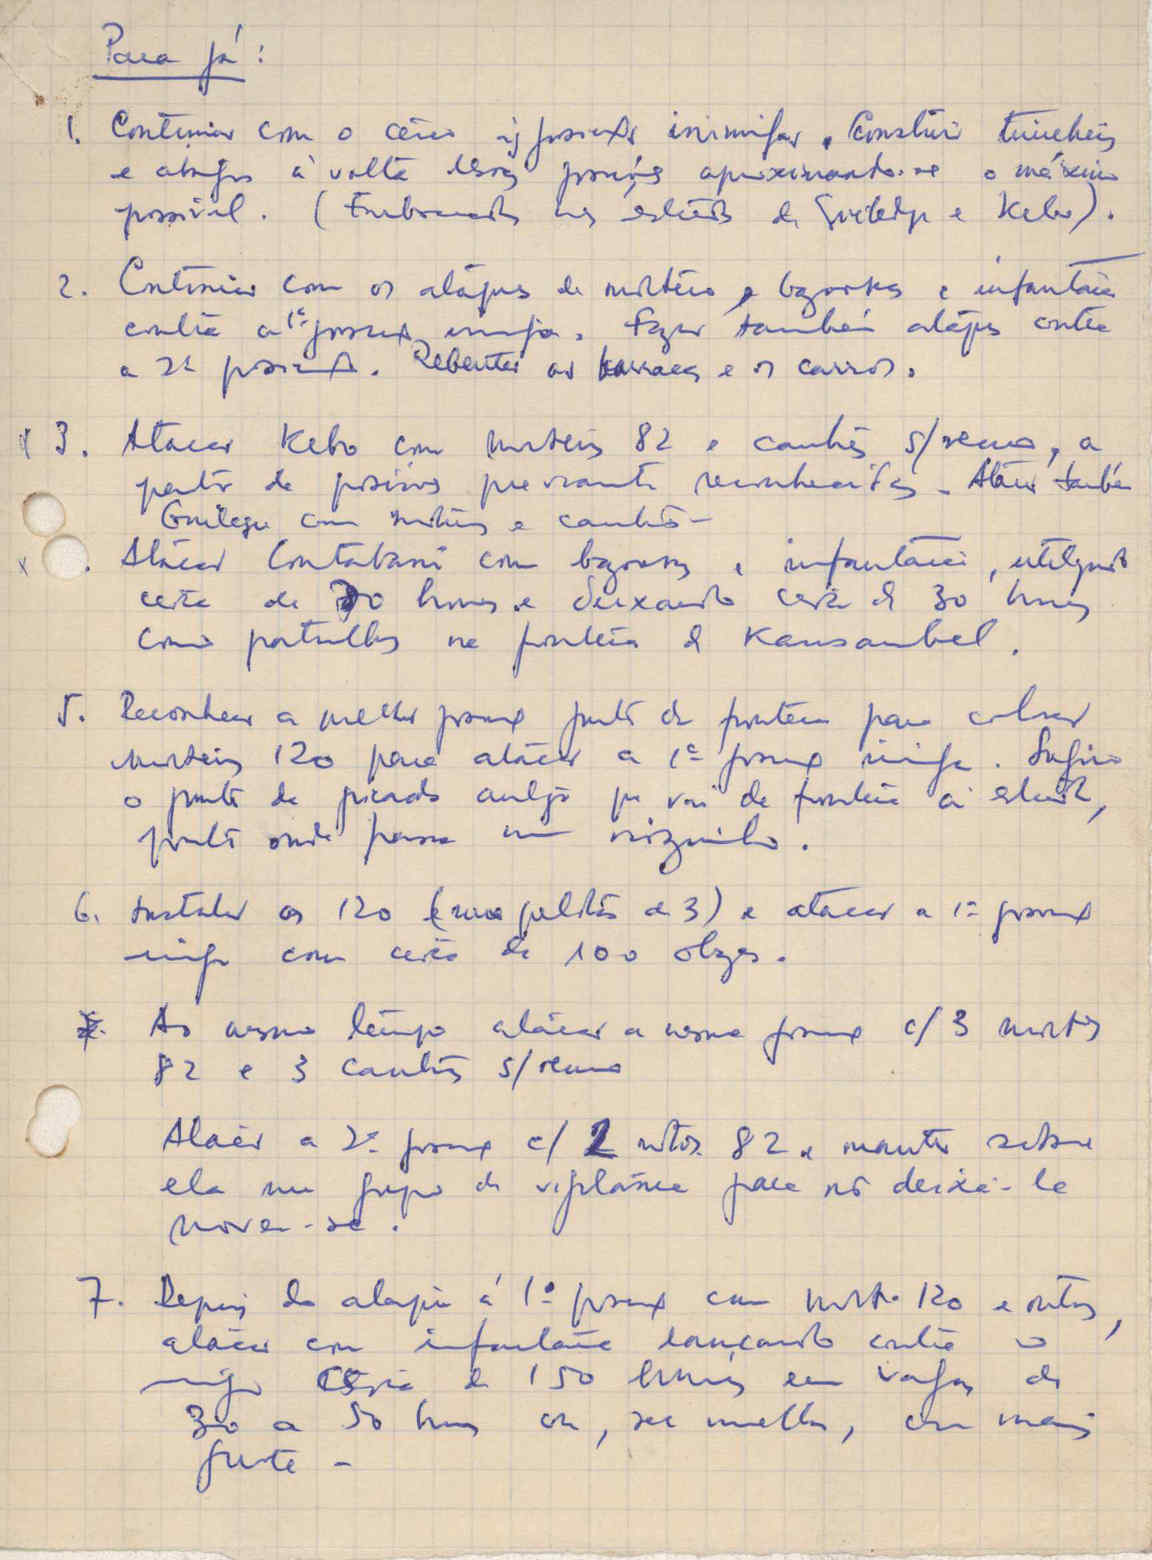 Para já:
1. Continuar com o cêrco às posições inimigas. Construir trincheiras
e abrigos à volta dessas posições aproximando-se o máximo
possível. (Emboscadas nas estradas de Guiledje e Kebo).
2. Continuar com os ataques de morteiro, bazookas e infantaria
contra a 1ª posição inimiga. Fazer também ataques contra
a 2ª posição. Rebentar as barracas e os carros.
3. Atacar Kebo com morteiros 82 e canhões s/recuo, a
partir de posições previamente reconhecidas. Atacar também
Guilege com morteiros e canhões-
. Atacar Contabani com bazookas e infantaria, utilizando
cerca de 70 homens e deixando cerca de 30 homens
como patrulhas na fronteira de Kansambel.
5. Reconhecer a melhor posição junto da fronteira para colocar
morteiros 120 para atacar a 1ª posição inimiga. Sugiro
o ponto da picada antiga que vai da fronteira à estrada,
ponto onde passa um riozinho.
6. Instalar os 120 (num pelotão de 3) e atacar a 1ª posição
inimiga com cerca de 100 obuzes.
Ao mesmo tempo atacar a mesma posição c/ 3 morteiros
82 e 3 canhões s/recuo
Atacar a 2ª posição c/ 2 mortos. 82 e manter sobre
ela um grupo de vigilância para não deixá-la
mover-se.
7. Depois do ataque à 1ª posição com mort. 120 e outros,
atacar com infantaria lançando contra o
inigo cerca de 150 homens em vagas de
30 a 50 homens ou, se melhor, em mais
gente -